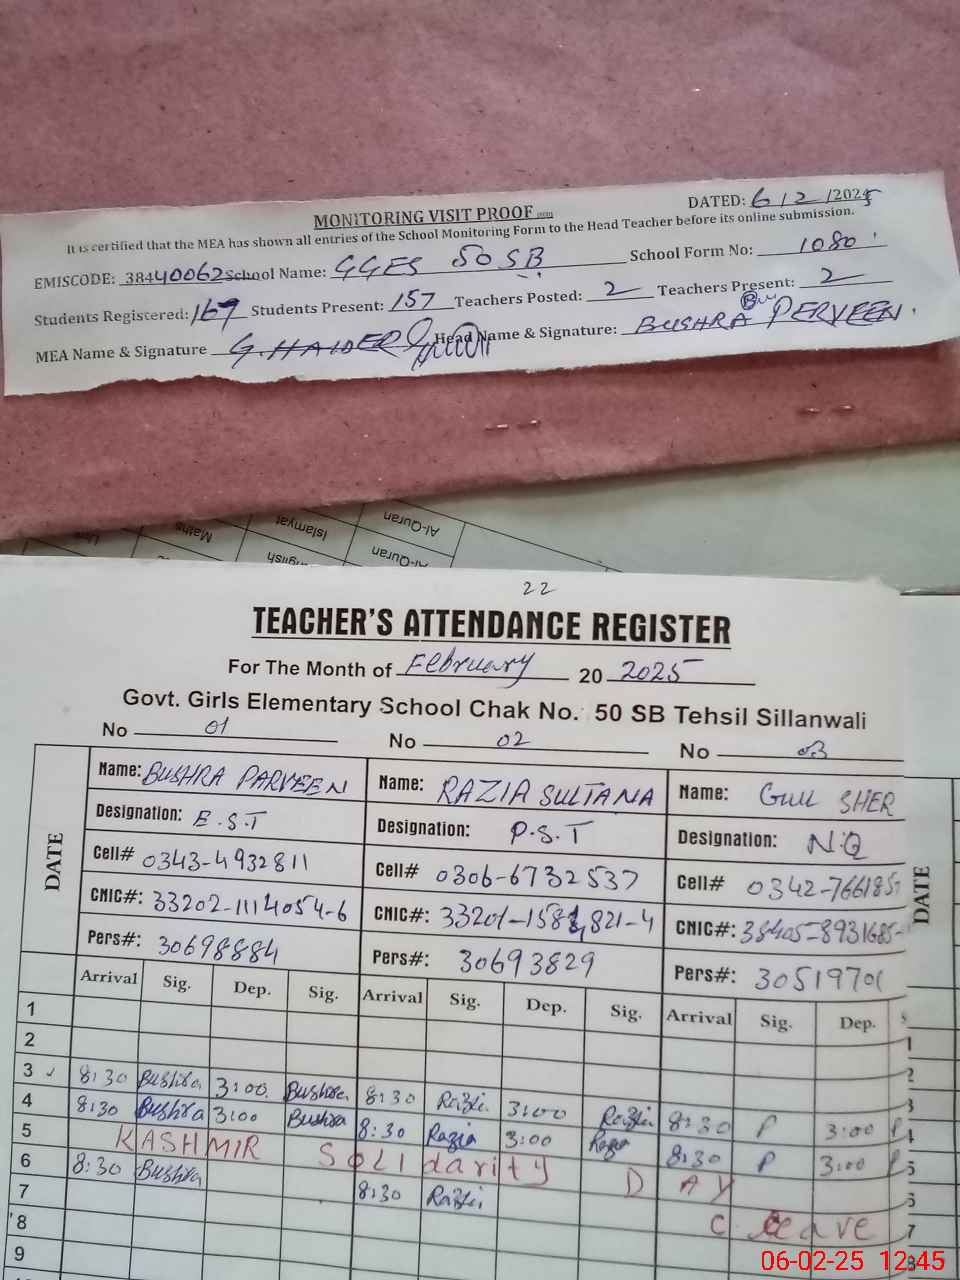 MONITORING VISIT PROOF
DATED: 6/2/2025
It is certified that the MEA has shown all entries of the School Monitoring Form to the Head Teacher before its online submission.
EMISCODE: 38440062 School Name: GGES 50 SB School Form No: 1080
Students Registered: 167 Students Present: 157 Teachers Posted: 2 Teachers Present: 2
MEA Name & Signature G. HAIDER Head Name & Signature: BUSHRA PERVEEN.
Al-Quran
Islamyat
Maths
Urdu
Al-Quran
English
22
TEACHER'S ATTENDANCE REGISTER
For The Month of February 20 2025
Govt. Girls Elementary School Chak No. 50 SB Tehsil Sillanwali
No 01 No 02 No 03
DATE Name: BUSHRA PARVEEN Name: RAZIA SULTANA Name: GULL SHER DATE
Designation: E.S.T Designation: P.S.T Designation: N.Q
Cell# 0343-4932811 Cell# 0306-6732537 Cell# 0342-766185
CNIC#: 33202-1114054-6 CNIC#: 33201-1581821-4 CNIC#: 38405-8931685-
Pers#: 30698884 Pers#: 30693829 Pers#: 3051970
Arrival Sig. Dep. Sig. Arrival Sig. Dep. Sig. Arrival Sig. Dep. S
1 1
2 2
3 8:30 Bushra 3:00 Bushra 8:30 Razia 3:00 Razia 8:30 P 3:00 P 3
4 8:30 Bushra 3:00 Bushra 8:30 Razia 3:00 Razia 8:30 P 3:00 P 4
5 KASHMIR Solidarity DAY 5
6 8:30 Bushra 8:30 Razia C. Leave 6
7 7
8 8
9
06-02-25 12:45